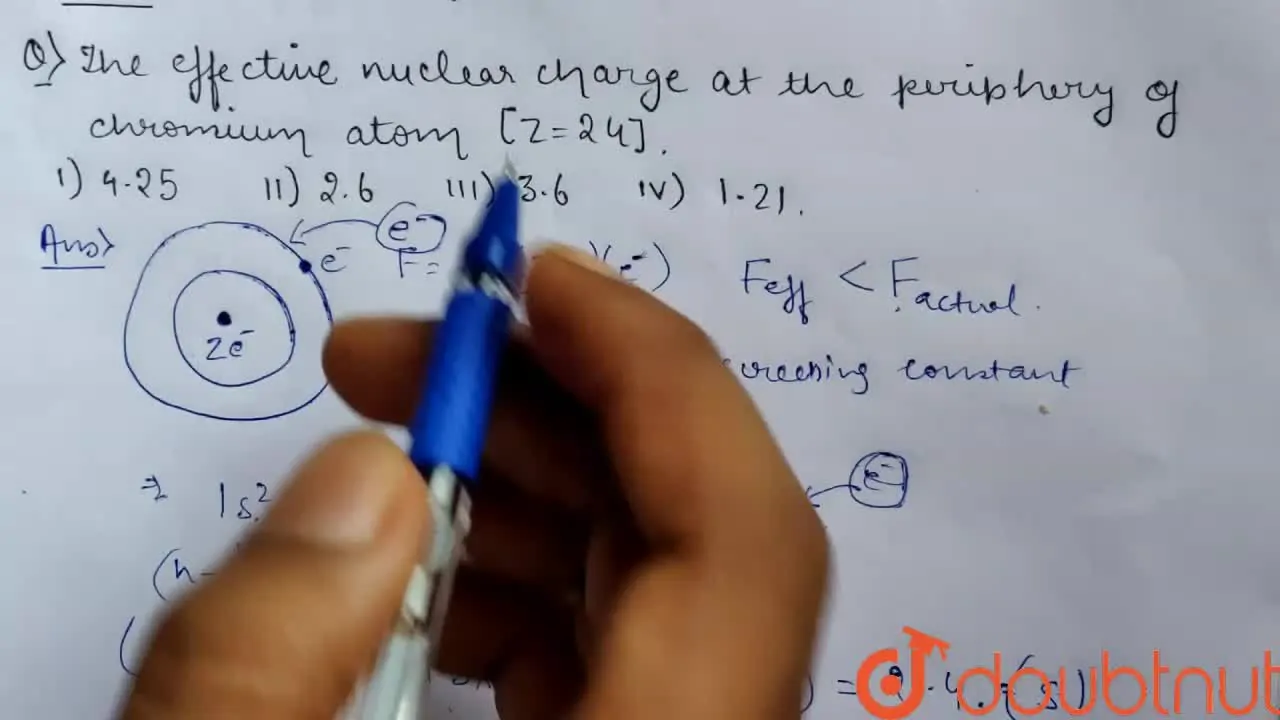 Q) The effective nuclear charge at the periphery of
chromium atom [Z=24].
I) 4.25 II) 2.6 III) 3.6 IV) 1.21.
Ans)
e⁻
e⁻
2e⁻
F=
)(e⁻)
Feff < Factual.
screening constant
e⁻
⇒ 1s²
(n-
(
) = 21.4 = (s)
doubtnut